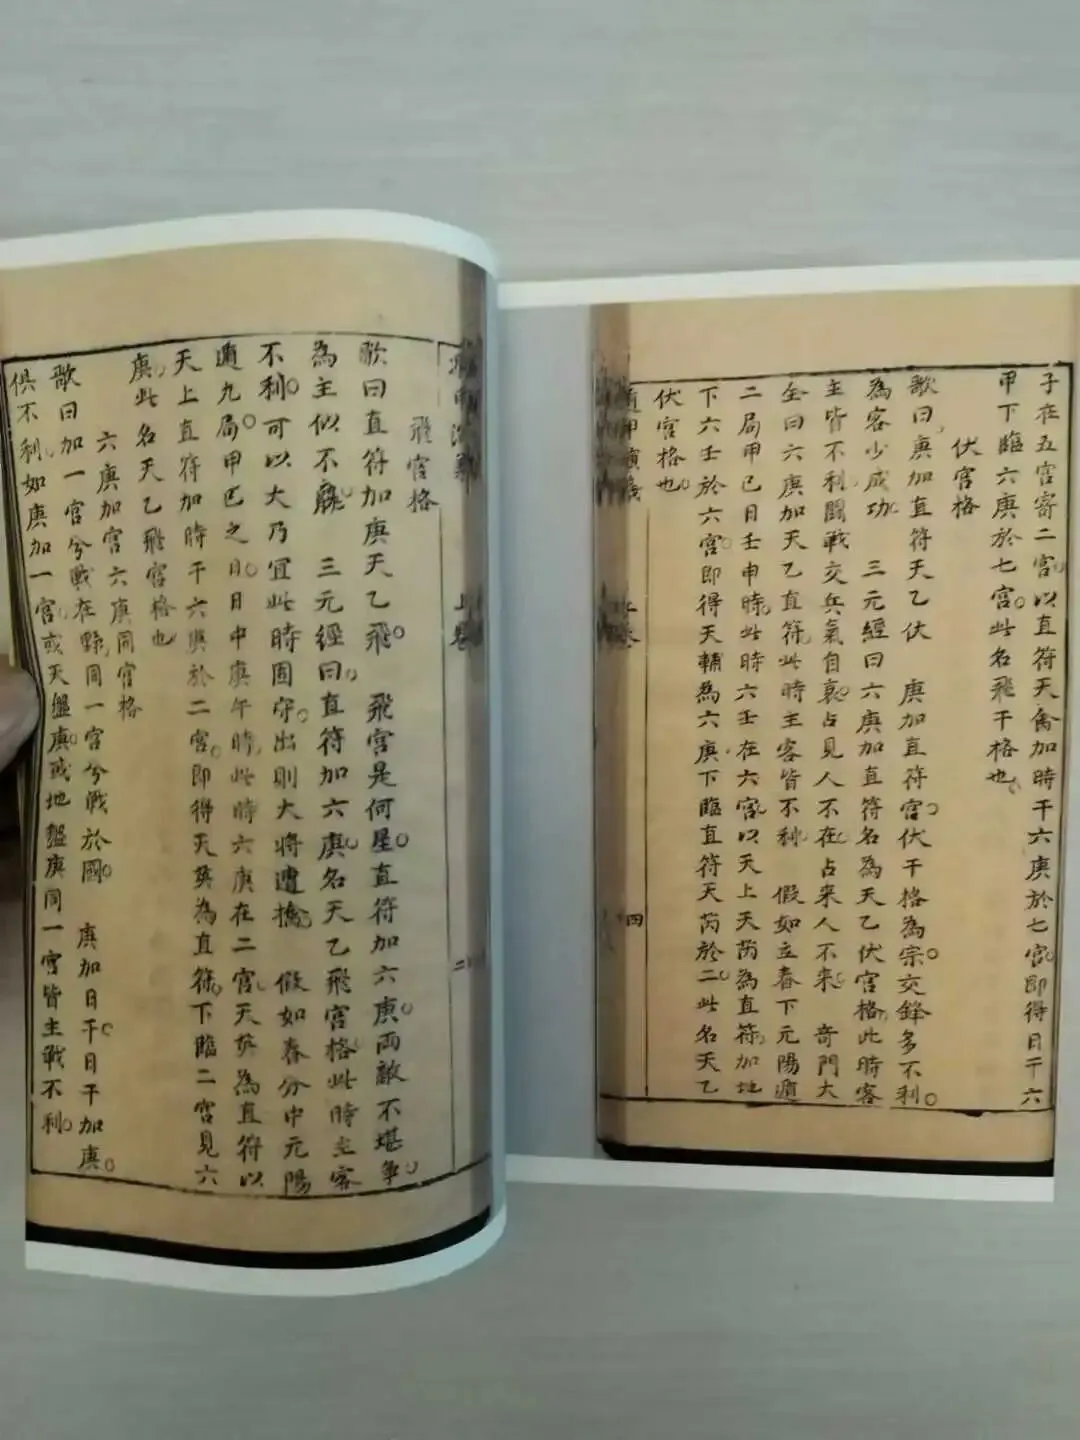 子在五宮寄二宮以直符天禽加時干六庚於七宮即得日干六
甲下臨六庚於七宮此名飛干格也
伏宮格
歌曰庚加直符天乙伏 庚加直符宮伏干格為宗交鋒多不利
為客少成功 三元經曰六庚加直符名為天乙伏宮格此時客
主皆不利鬪戰交兵氣自衰占見人不在占來人不來 奇門大
全曰六庚加天乙直符此時主客皆不利 假如立春下元陽遁
二局甲己日壬申時此時六壬在六宮以天上天芮為直符加地
下六壬於六宮即得天輔為六庚下臨直符天芮於二此名天乙
伏宮格也
遁甲演義 上卷 四
上卷 二
飛宮格
歌曰直符加庚天乙飛 飛宮是何星直符加六庚兩敵不堪爭
為主似不 三元經曰直符加六庚名天乙飛宮格此時主客
不利可以大乃宜此時固守出則大將遭擒 假如春分中元陽
遁九局甲己之日日中庚午時此時六庚在二宮天英為直符以
天上直符加時干六庚於二宮即得天英為直符下臨二宮見六
庚此名天乙飛宮格也
六庚加宮六庚同宮格
歌曰加一宮兮戰在野同一宮兮戰於國 庚加日干日干加庚
俱不利如庚加一宮或天盤庚或地盤庚同一宮皆主戰不利